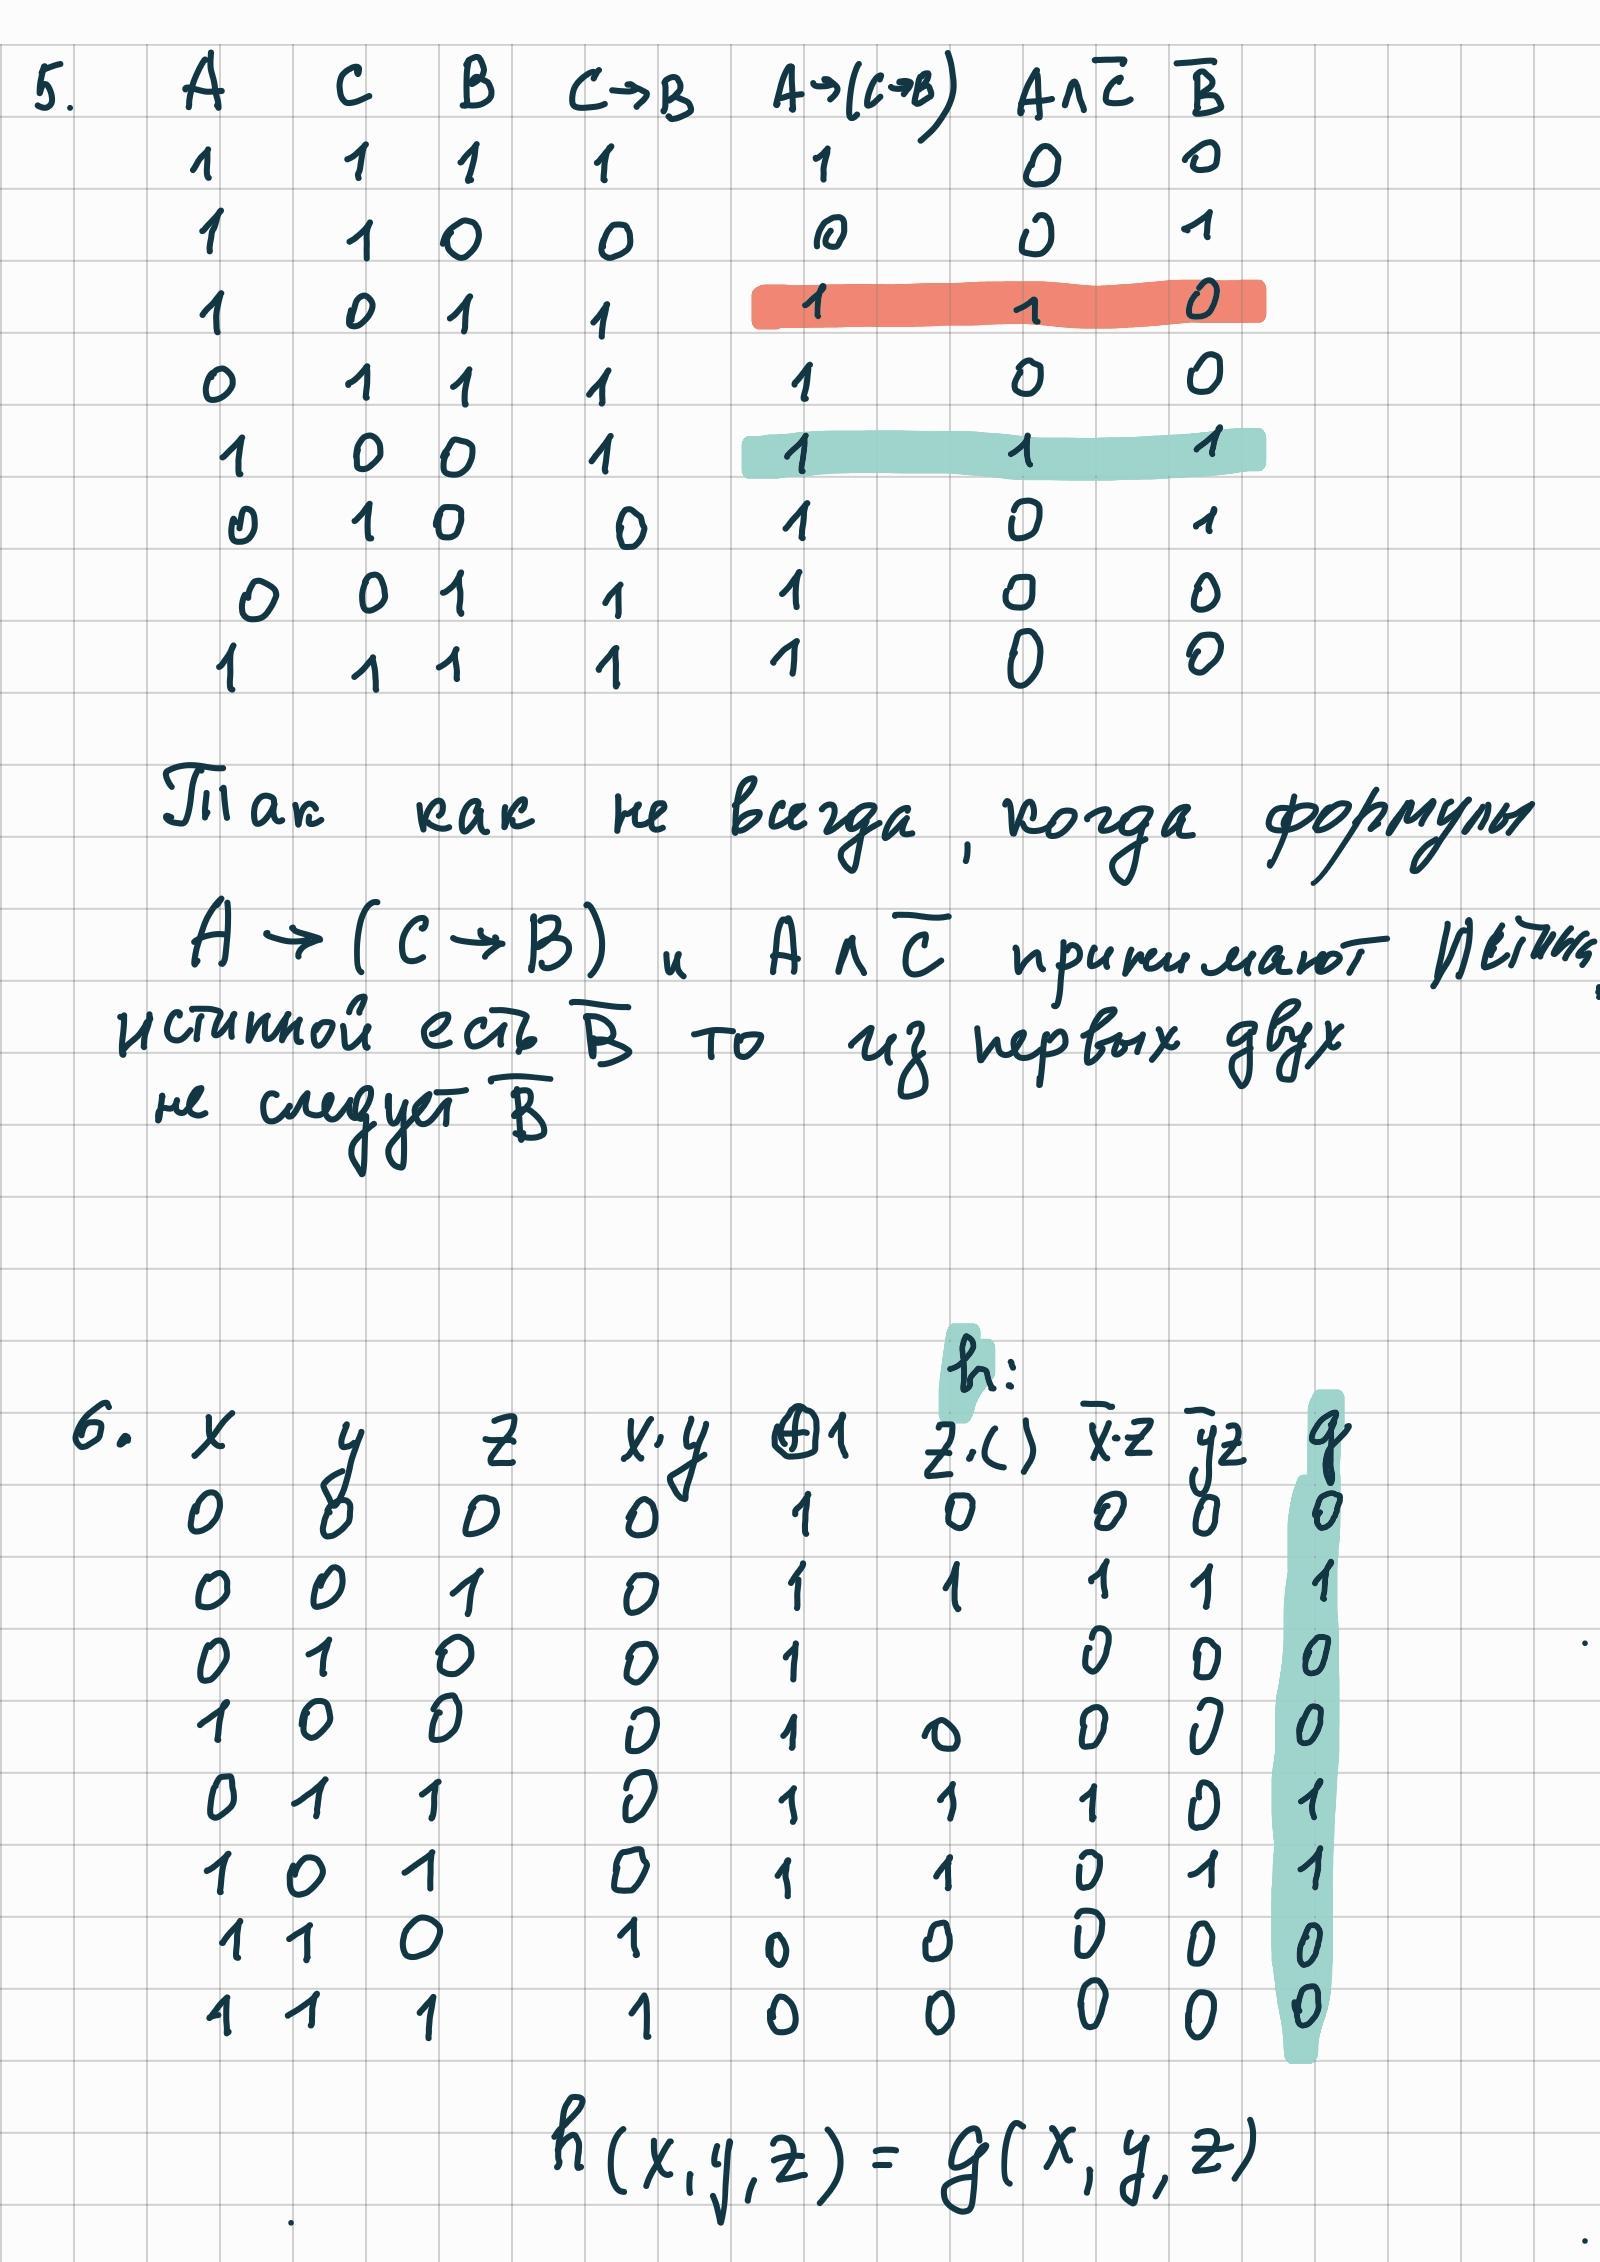 5. A C B C→B A→(C→B) A∧C̅ B̅
1 1 1 1 1 0 0
1 1 0 0 0 0 1
1 0 1 1 1 1 0
0 1 1 1 1 0 0
1 0 0 1 1 1 1
0 1 0 0 1 0 1
0 0 1 1 1 0 0
1 1 1 1 1 0 0
Так как не всегда, когда формулы
A → (C → B) и A ∧ C̅ принимают Истина,
истинной есть B̅ то из первых двух
не следует B̅
h:
6. x y z x·y ⊕1 z·() x̅·z y̅z g
0 0 0 0 1 0 0 0 0
0 0 1 0 1 1 1 1 1
0 1 0 0 1 0 0 0
1 0 0 0 1 0 0 0 0
0 1 1 0 1 1 1 0 1
1 0 1 0 1 1 0 1 1
1 1 0 1 0 0 0 0 0
1 1 1 1 0 0 0 0 0
h(x,y,z) = g(x,y,z)